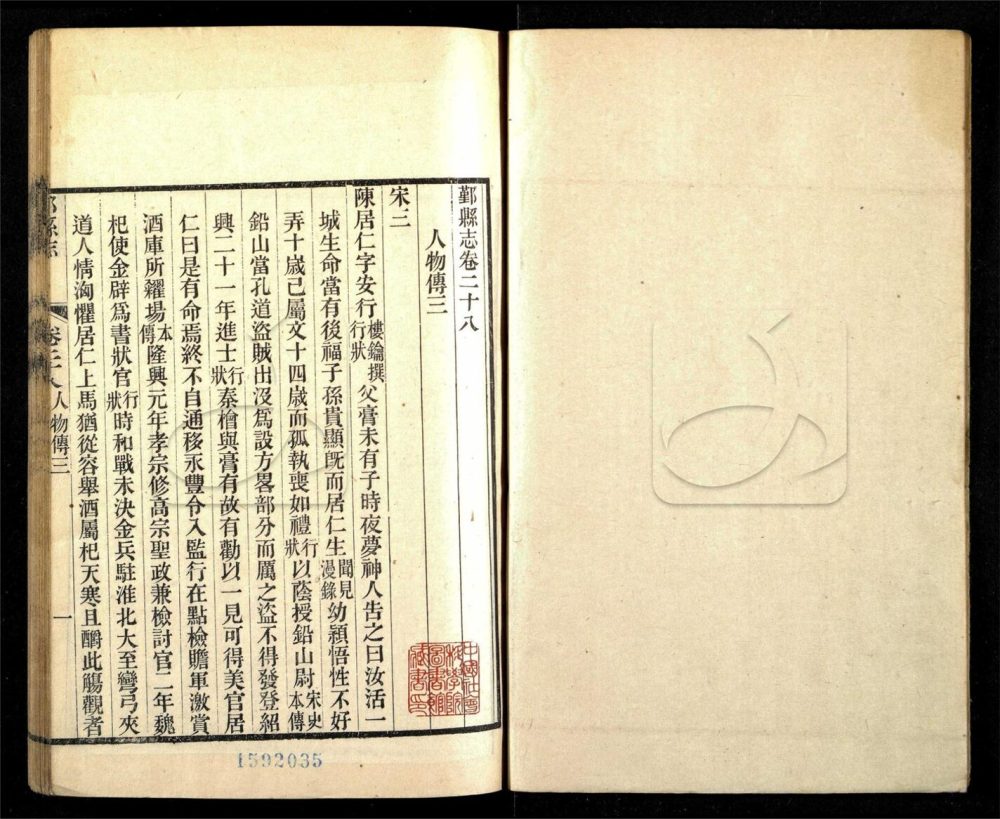 鄞縣志卷二十八
人物傳三
宋三
陳居仁字安行樓鑰撰行狀父膏未有子時夜夢神人告之曰汝活一
城生命當有後福子孫貴顯旣而居仁生聞見漫錄幼穎悟性不好
弄十歲已屬文十四歲而孤執喪如禮行狀以蔭授鉛山尉宋史本傳
鉛山當孔道盜賊出沒爲設方畧部分而厲之盜不得發登紹
興二十一年進士行狀秦檜與膏有故有勸以一見可得美官居
仁曰是有命焉終不自通移永豐令入監行在點檢贍軍激賞
酒庫所糴場本傳隆興元年孝宗修高宗聖政兼檢討官二年魏
杞使金辟爲書狀官行狀時和戰未決金兵駐淮北大至彎弓夾
道人情洶懼居仁上馬猶從容舉酒屬杞天寒且釂此觴觀者
鄞縣志
卷二十八人物傳三
一
中國社會科學院圖書館藏書印
1592035